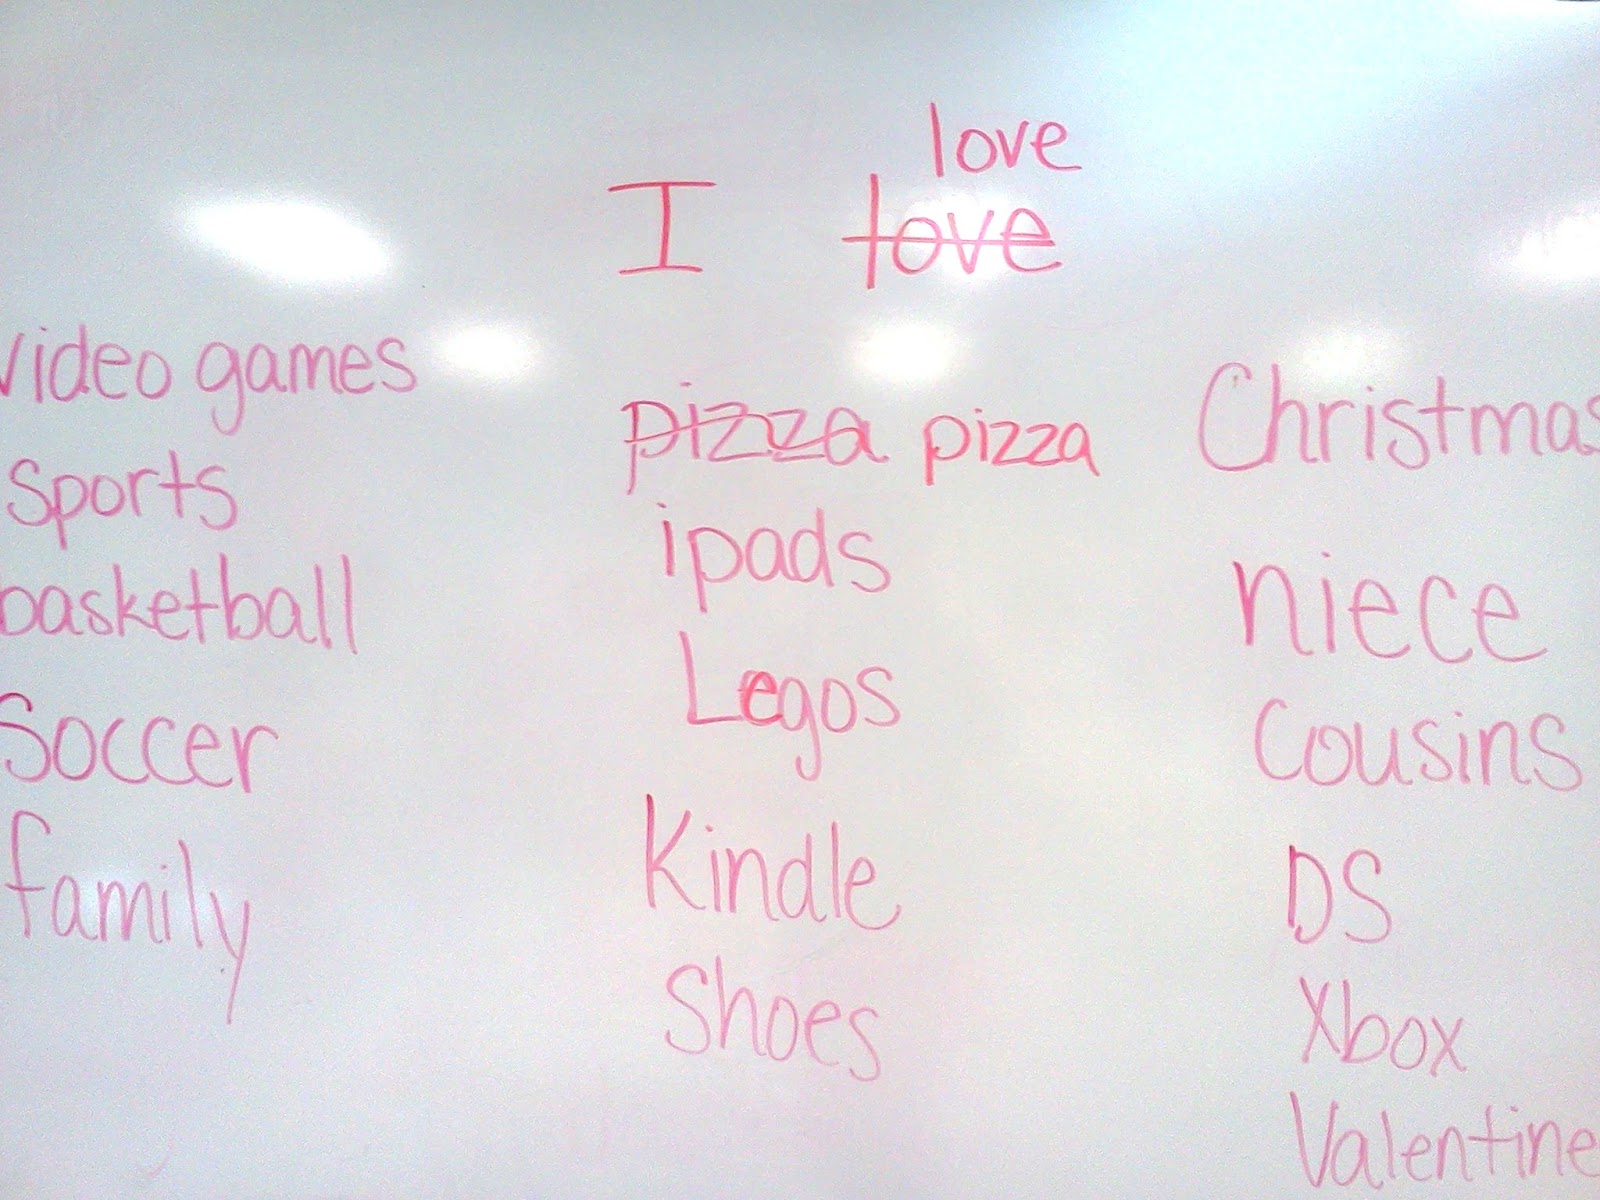 love
I love
video games
Sports
basketball
Soccer
family
pizza pizza
ipads
Legos
Kindle
Shoes
Christmas
niece
Cousins
DS
Xbox
Valentine